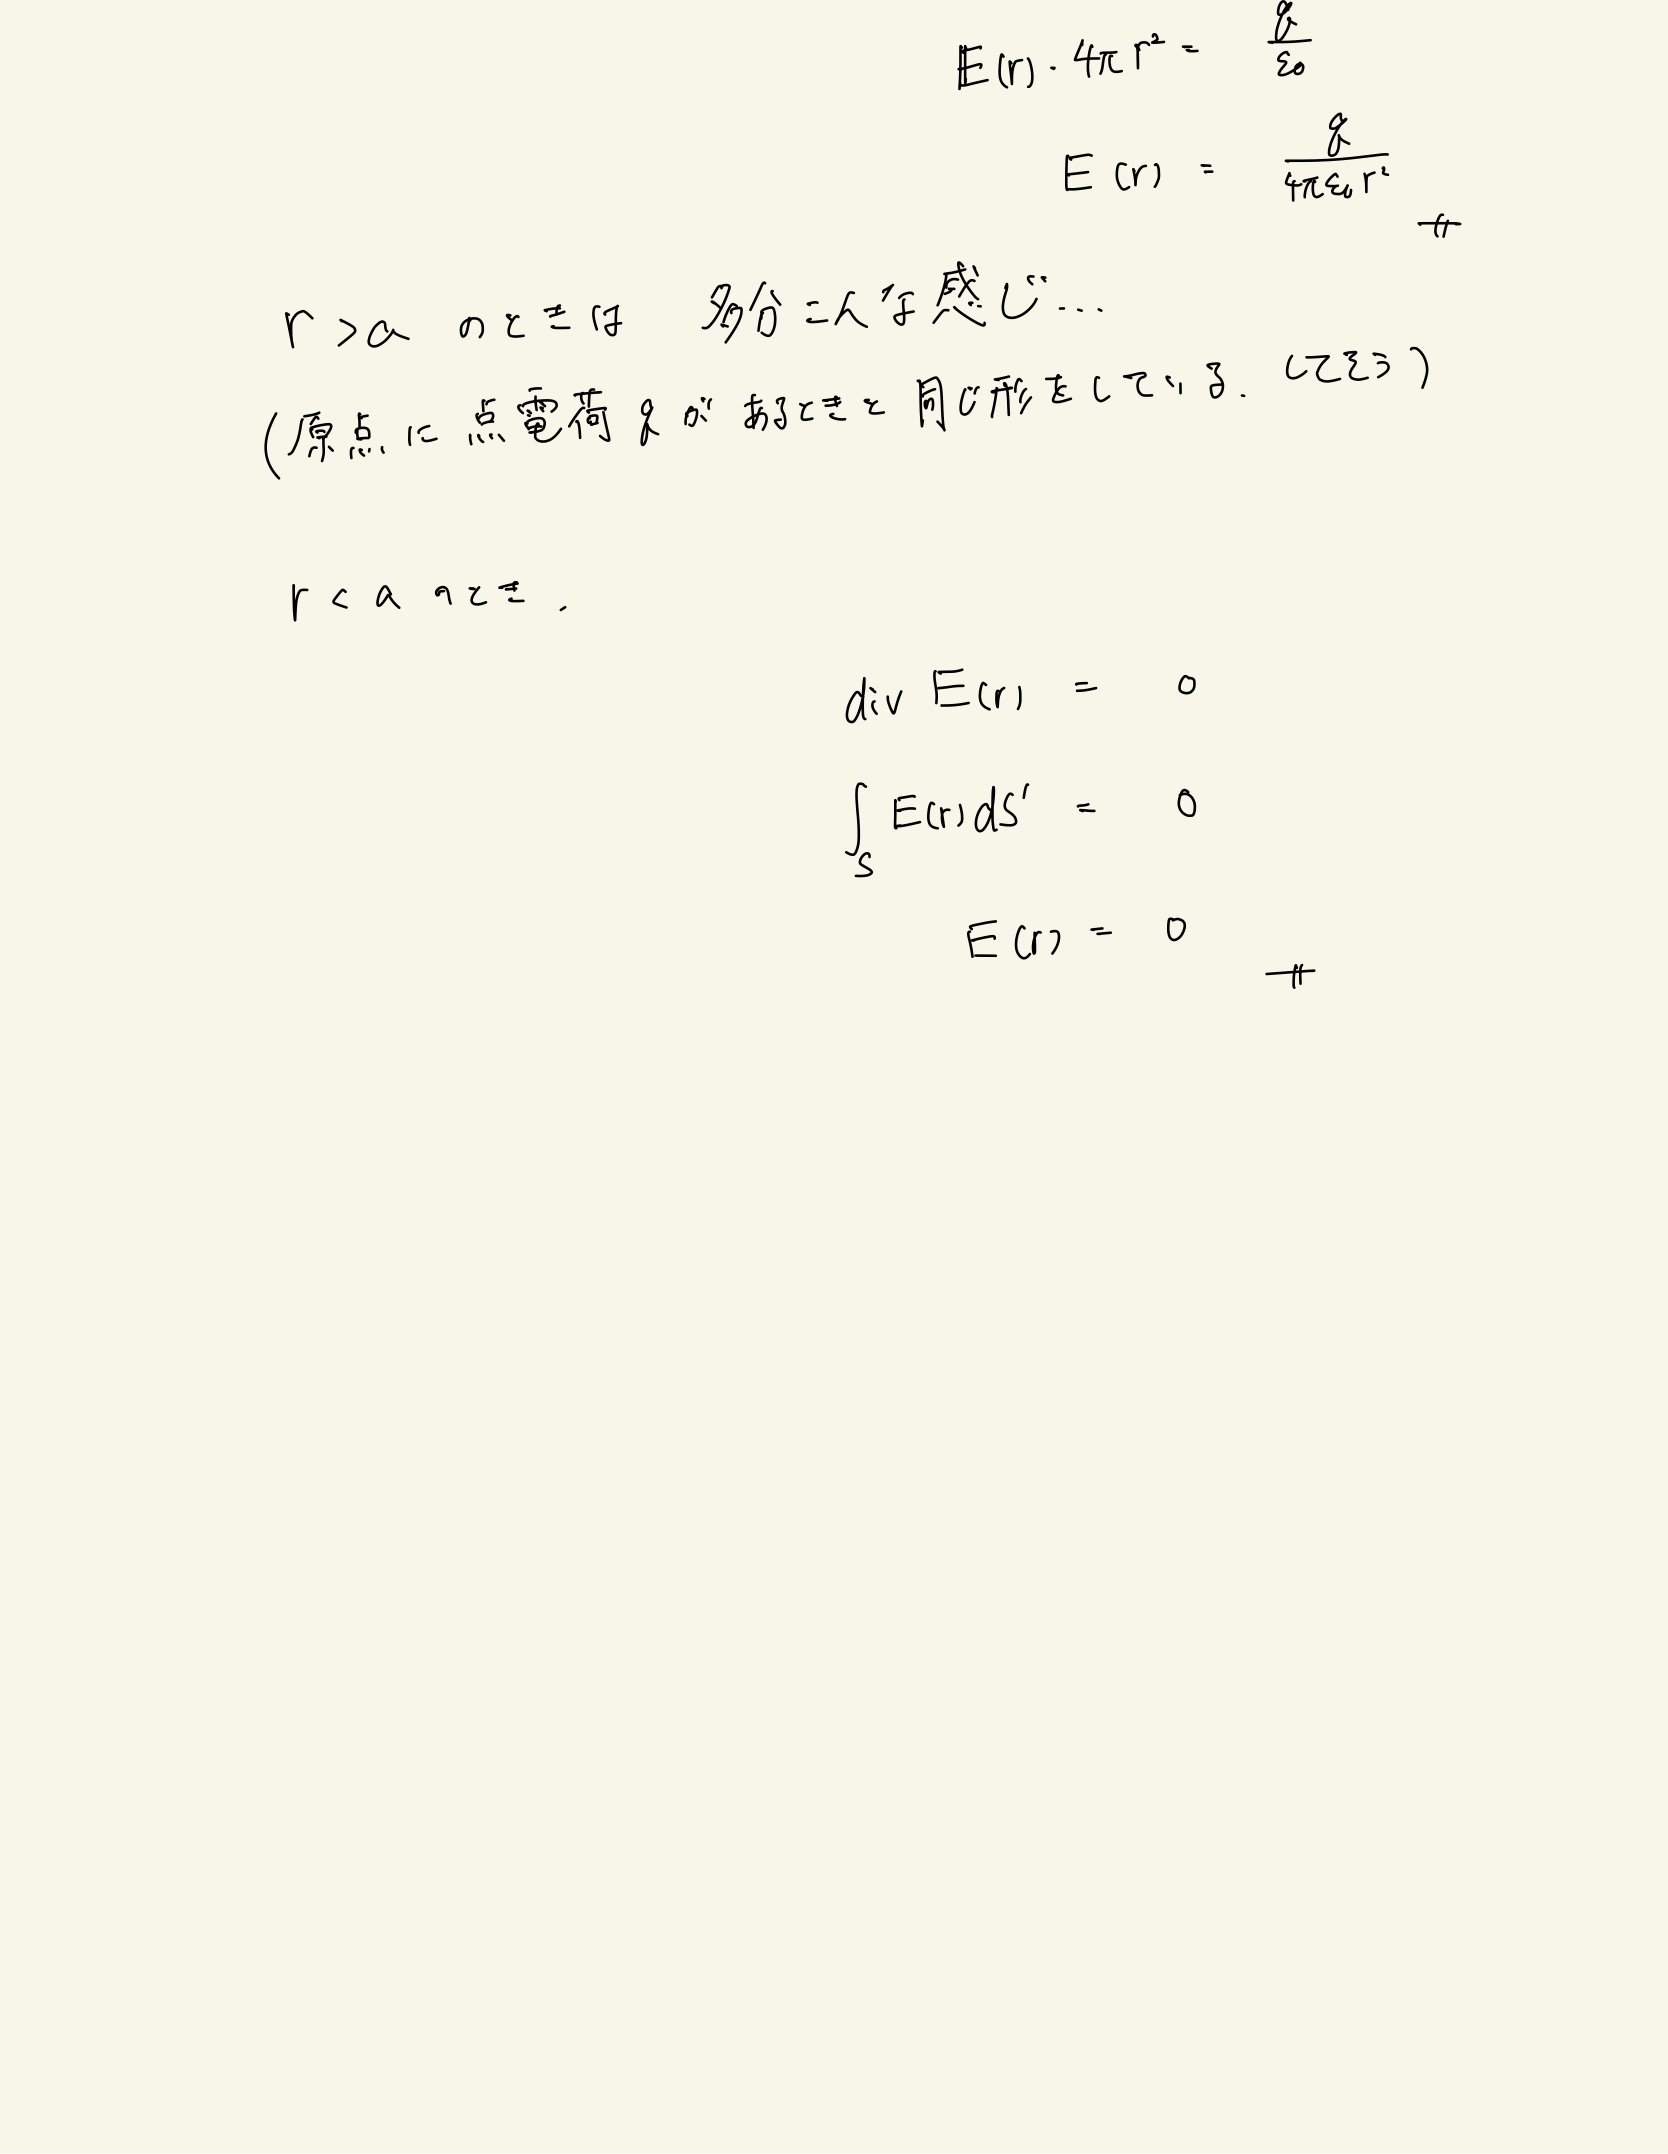 E(r)・4πr² = q/ε₀
E(r) = q/4πε₀r²
r > a のときは 多分こんな感じ...
(原点に点電荷qがあるときと同じ形をしている. してそう)
r < a のとき.
div E(r) = 0
∫_S E(r)dS' = 0
E(r) = 0